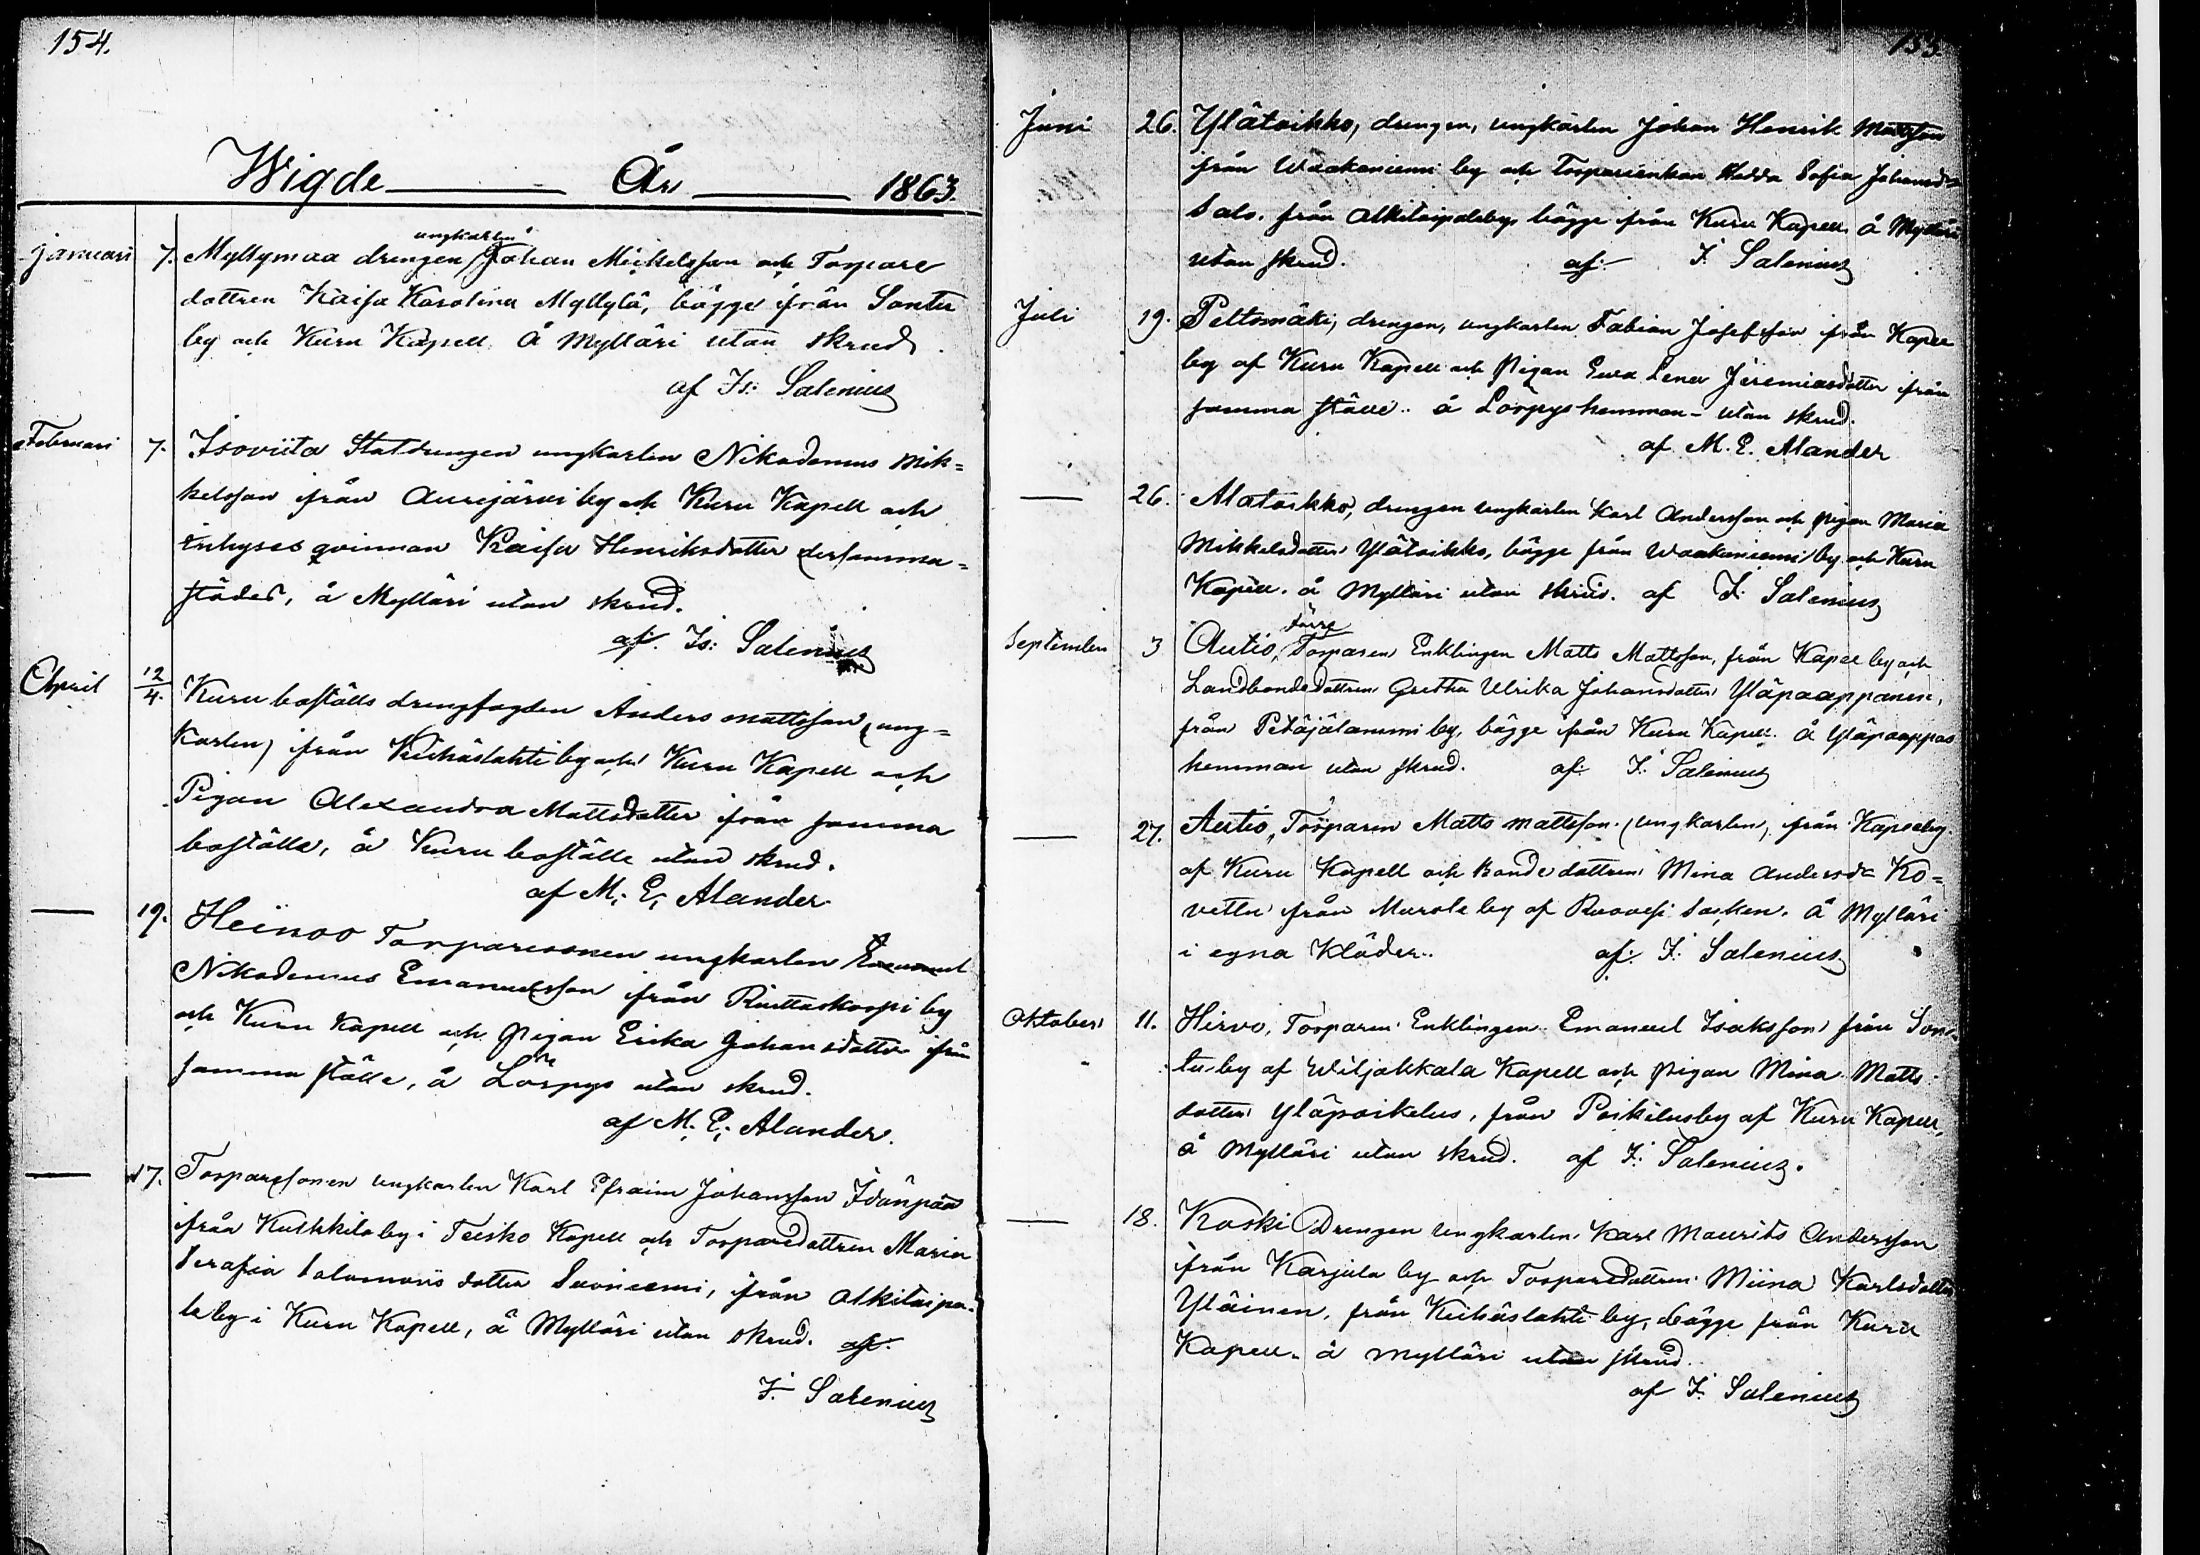 154.
Wigde År 1863.
Januari 7. Myllymaa drengen ungkarlen Johan Mickelsson och Torpare
dottren Kaisa Karolina Myllylä, bägge från Sontu
by och Kuru Kapell å Mylläri utan skrud.
af Is: Salenius
Februari 7. Isoviita Statdrengen ungkarlen Nikodemus Mik=
kelsson från Aurejärvi by och Kuru Kapell och
inhyses qvinnan Kaisa Henriksdotter dersamma=
städes, å Mylläri utan skrud.
af. Is: Salenius
April 12/4. Kuru boställs drengfogden Anders Mattsson, (ung=
karlen) från Keihäslahti by och Kuru Kapell och
Pigan Alexandra Mattsdotter från samma
boställe, å Kuru boställe utan skrud.
af M. E. Alander
— 19. Heinoo Torparesonen ungkarlen Emanuel
Nikodemus Emanuelsson från Riuttaskorpi by
och Kuru Kapell och Pigan Erika Johansdotter från
samma ställe, å Lörpys utan skrud.
af M. E. Alander.
— 17. Torparesonen ungkarlen Karl Efraim Johansson Idänpää
från Kulkkila by i Teisko Kapell och Torparedottren Maria
Serafia Salomonsdotter Suoniemi, från Olkitaipa=
le by i Kuru Kapell, å Mylläri utan skrud. af.
I. Salenius
155.
Juni 26. Ylätoikko, drengen, ungkarlen Johan Henrik Mattsson
från Waakaniemi by och Torparenkan Hedda Sofia Johansd=
Salo. från Olkitaipaleby, bägge från Kuru Kapell. å Mylläri
utan skrud. af. I. Salenius
Juli 19. Peltomäki, drengen, ungkarlen Fabian Josefsson från Kapell
by af Kuru Kapell och Pigan Ewa Lena Jeremiasdotter från
samma ställe.. å Lörpys hemman- utan skrud.
af M. E. Alander
— 26. Alatoikko, drengen ungkarlen Karl Andersson och pigan Maria
Mikkelsdotter Ylätoikko, bägge från Waakaniemi by och Kuru
Kapell. å Mylläri utan skrud. af I. Salenius
September 3 Autio, förre Torparen Enklingen Matts Mattsson, från Kapell by och
Landbondedottren Gretha Ulrika Johansdotter Yläpaappanen,
från Petäjälammi by, bägge från Kuru Kapell. å Yläpaappas
hemman utan skrud. af: I. Salenius
— 27. Autio, Torparen Matts Mattsson. (ungkarlen, från Kapellby
af Kuru Kapell och Bondedottren Mina Andersd= Ko=
vettu från Murole by af Ruovesi Socken. å Mylläri
i egna kläder.. af. I. Salenius
Oktober 11. Hirvo, Torparen Enklingen Emanuel Isaksson från Son=
tu by af Wiljakkala Kapell och Pigan Mina Matts
dotter Yläpoikelus, från Poikelusby af Kuru Kapell,
å Mylläri utan skrud. af I. Salenius.
— 18. Koski Drengen ungkarlen Karl Maurits Andersson
från Karjula by och Torparedottren Miina Karlsdotter
Yläinen, från Keihäslahti by, bägge från Kuru
Kapell. å Mylläri utan skrud.
af I. Salenius